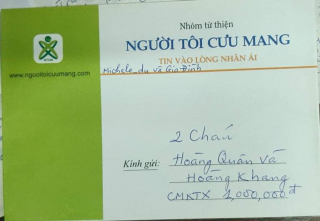 Nhóm từ thiện
NGƯỜI TÔI CƯU MANG
TIN VÀO LÒNG NHÂN ÁI
www.nguoitoicuumang.com
Michele_du và Gia Đình
2 Cháu
Kính gửi: Hoàng Quân Và
Hoàng Khang
CMKTX 2,000,000đ